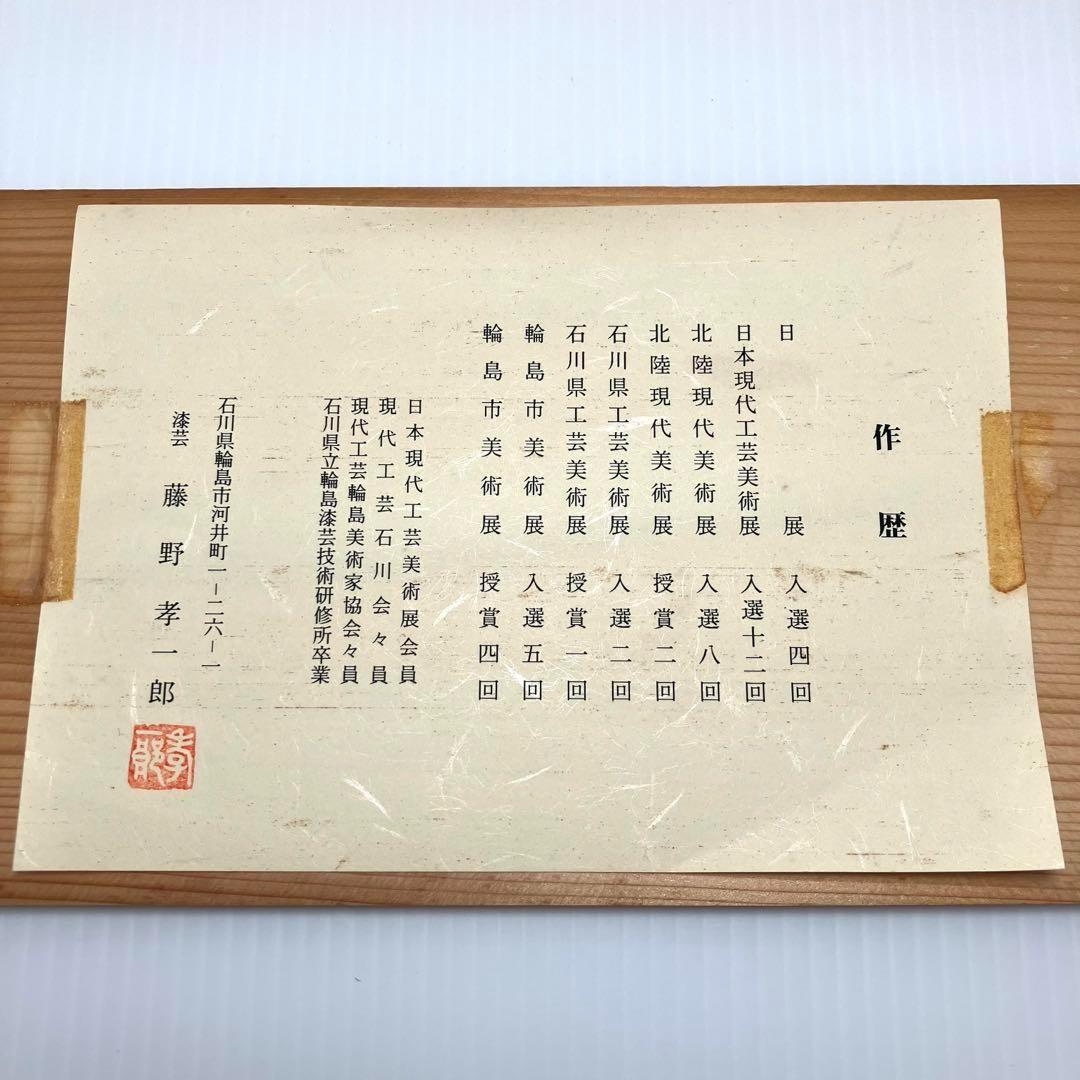 作歴
日展 入選四回
日本現代工芸美術展 入選十二回
北陸現代美術展 入選八回
北陸現代美術展 授賞二回
石川県工芸美術展 入選二回
石川県工芸美術展 授賞一回
輪島市美術展 入選五回
輪島市美術展 授賞四回
日本現代工芸美術展会員
現代工芸石川会々員
現代工芸輪島美術家協会々員
石川県立輪島漆芸技術研修所卒業
石川県輪島市河井町一－二六－一
漆芸 藤野孝一郎
孝一郎